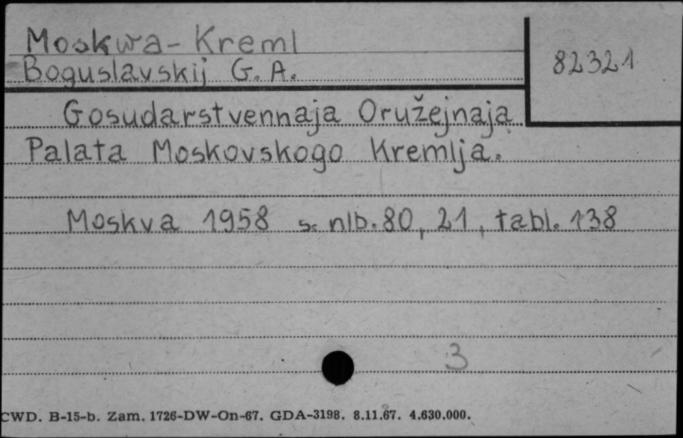 Moskwa-Kreml
82321
Boguslavskij G. A.
Gosudarstvennaja Oružejnaja
Palata Moskovskogo Kremlja.
Moskva 1958 s. nlb. 80, 21, tabl. 138
3
CWD. B-15-b. Zam. 1726-DW-On-67. GDA-3198. 8.11.67. 4.630.000.